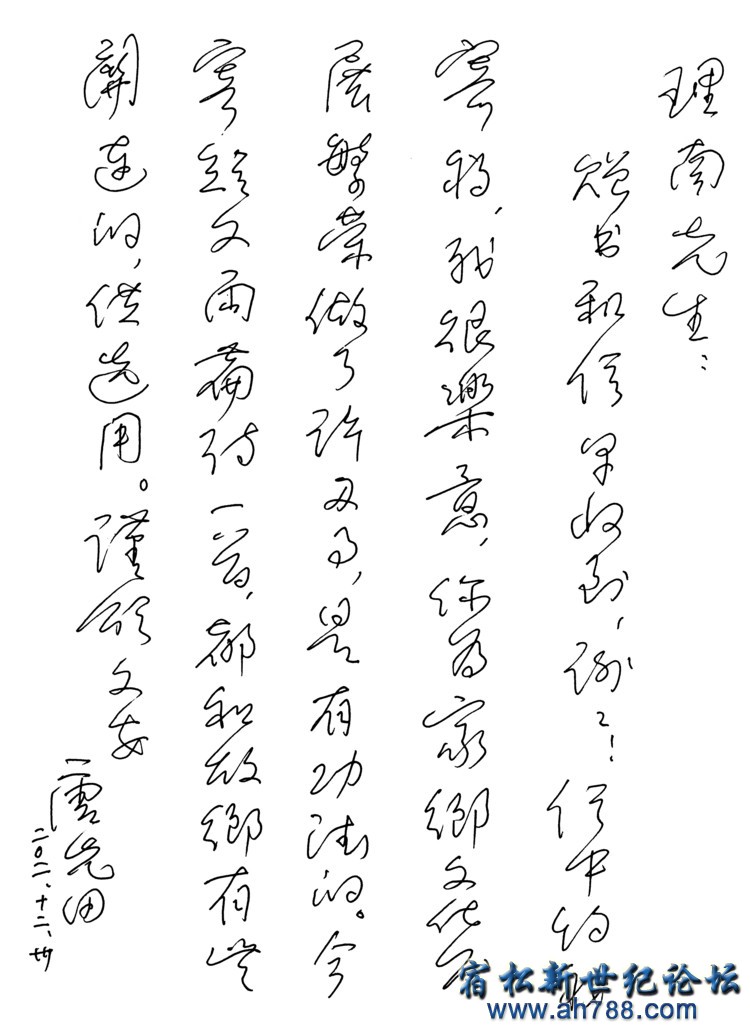 理南先生:
赠书和信早收到,谢谢!信中约我
寄稿,我很樂意,你为家鄉文化发
展繁荣做了许多事,是有功德的。今
寄短文两篇诗一首,都和故鄉有些
關连的,供选用。謹颂文安
唐先田
二〇二一、十二、廿
宿松新世纪论坛
www.ah788.com